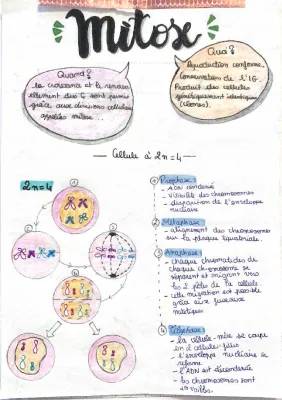 Mitose
Quand?
la croissance et le renouv
ellement des ¢ sont permis
grâce aux divisions cellulaires
appelés mitose...
Quoi?
Reproduction conforme.
Conservation de l'IG.
Produit des cellules
génétiquement identiques
(clones).
— Cellule à 2n=4 —
2n=4
1
2
3
4
1 Prophase:
- ADN condensé
- visibilité des chromosomes
- disparition de l'enveloppe
nucléaire
2 Métaphase:
- alignement des chromosomes
sur la plaque équatoriale.
3 Anaphase:
- chaque chromatides de
chaque chromosome se
séparent et migrent vers
les 2 pôles de la cellule
- cette migration est possible
grâce aux fuseaux
mitotiques
4 Télophase:
- la cellule-mère se coupe
en 2 cellules-filles
- l'enveloppe nucléaire se
reforme.
- l'ADN est décondensée
- les chromosomes sont